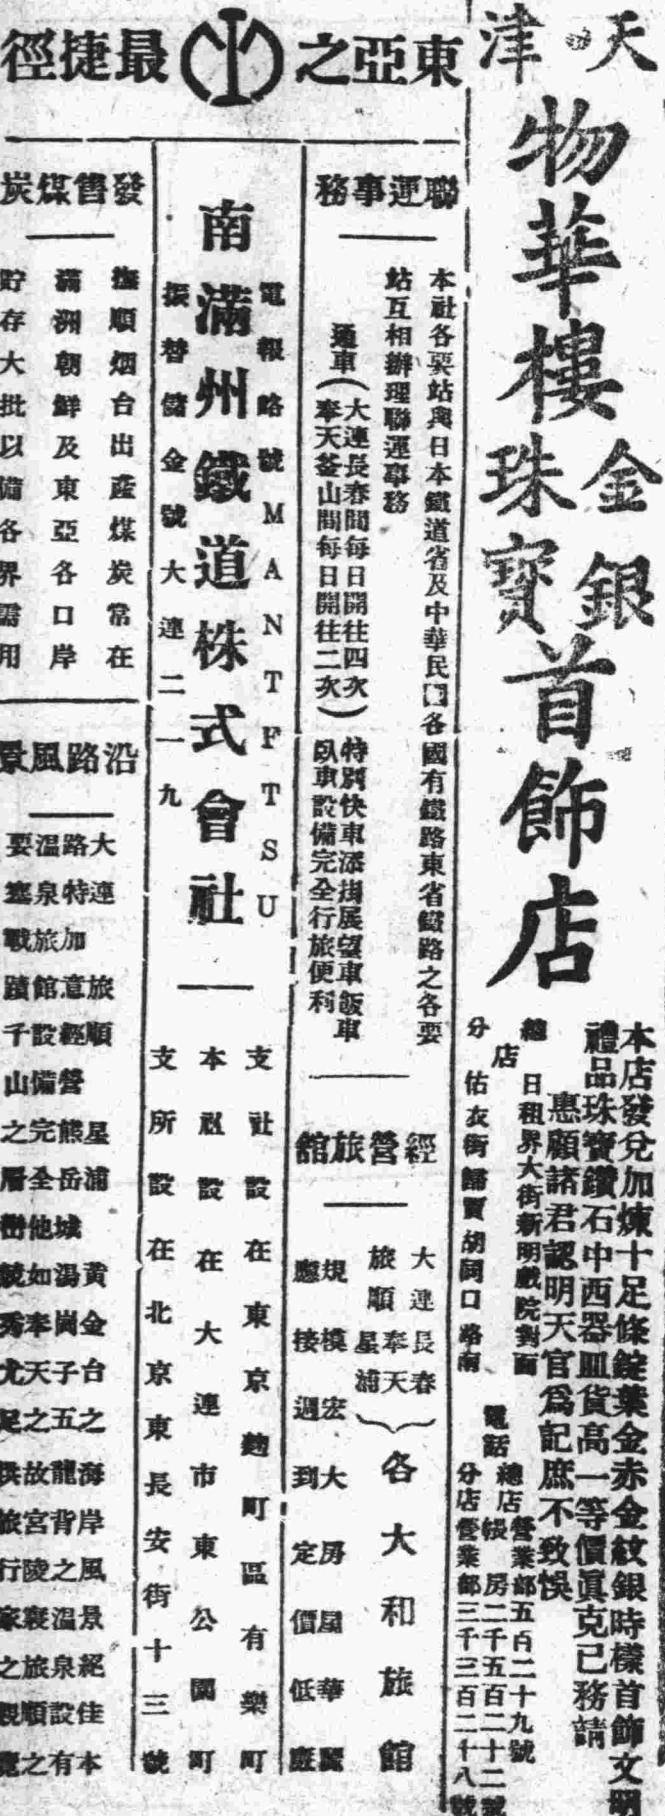 天津
物華樓
金銀
珠寶
首飾店
本店發兌加煉十足條錠葉金赤金紋銀時樣首飾文明
禮品珠寶鑽石中西器皿貨高一等價眞克已務請
惠顧諸君認明天官爲記庶不致悞
總店 日租界大街新明戲院對面
分店 估衣街歸賈胡同口路南
電話 總店 營業部五百二十九號
賬房二千五百二十二號
分店營業部三千三百二十八號
東亞之最捷徑
聯運事務
本社各要站與日本鐵道省及中華民國各國有鐵路東省鐵路之各要
站互相辦理聯運事務
通車(大連長春間每日開往四次
奉天釜山間每日開往二次)
特別快車添掛展望車飯車
臥車設備完全行旅便利
經營旅館
大連 長春
旅順 奉天
星浦
各大和旅館
規模宏大房屋華麗
應接週到定價低廉
電報略號MANTFTSU
南滿州鐵道株式會社
振替儲金號大連二一九
支社設在東京麴町區有樂町
本社設在大連市東公園町
支所設在北京東長安街十三號
發售煤炭
撫順烟台出產煤炭常在
滿洲朝鮮及東亞各口岸
貯存大批以備各界需用
沿路風景
大連 旅順 星浦 黃金台之海岸風景絕佳本
路特加意經營熊岳城湯崗子五龍背之溫泉設有
溫泉旅館設備完全他如奉天之故宮陵寢旅順之
要塞戰蹟千山之層巒競秀尤足供旅行家之觀覽